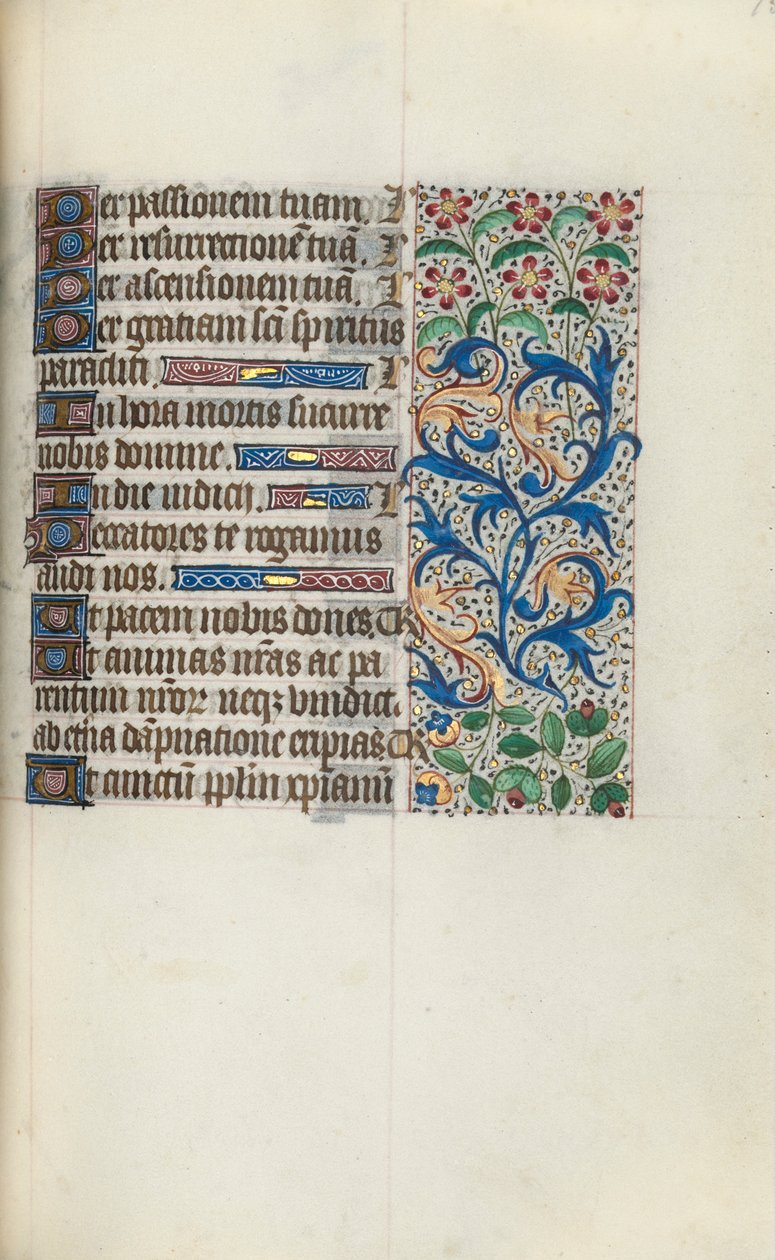 Per passionem tuam. L
Per resurrectionē tuā. L
Per ascensionem tuā. L
Per gratiam sci spiritus
paracliti. L
In hora mortis sucurre
nobis domine.
In die iudicii. L
Peccatores te rogamus
audi nos.
Ut pacem nobis dones. TR
Ut animas nr̄as ac pa
rentum nr̄oꝝ neqꝫ vindict.
ab etn̄a dāpnatione eripias TR
Ut cunctū pplm xp̄ianū